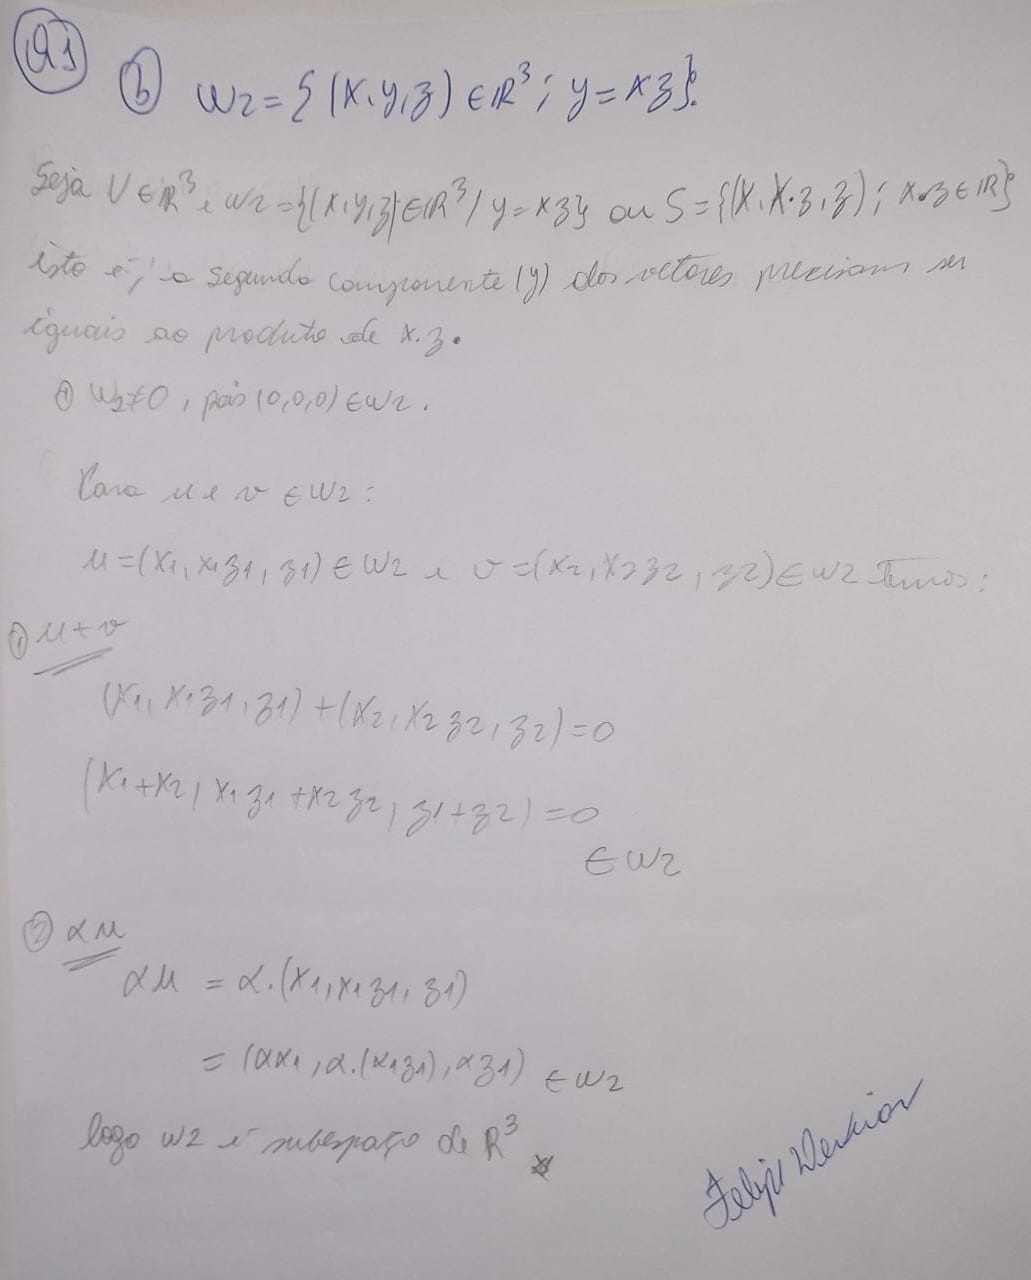 Q1
b) W2 = {(x,y,z) ∈ ℝ³; y = xz}.
Seja V ∈ ℝ³ e W2 = {(x,y,z) ∈ ℝ³ / y = xz} ou S = {(x, x·z, z); x,z ∈ ℝ}
isto é, a segunda componente (y) dos vetores precisam ser
iguais ao produto de x.z.
① W2 ≠ 0, pois (0,0,0) ∈ W2.
Para u e v ∈ W2:
u = (x1, x1z1, z1) ∈ W2 e v = (x2, x2z2, z2) ∈ W2 Temos:
① u + v
(x1, x1z1, z1) + (x2, x2z2, z2) = 0
(x1+x2, x1z1+x2z2, z1+z2) = 0
∈ W2
② αu
αu = α.(x1, x1z1, z1)
= (αx1, α.(x1z1), αz1) ∈ W2
logo W2 é subespaço de ℝ³
Felipe